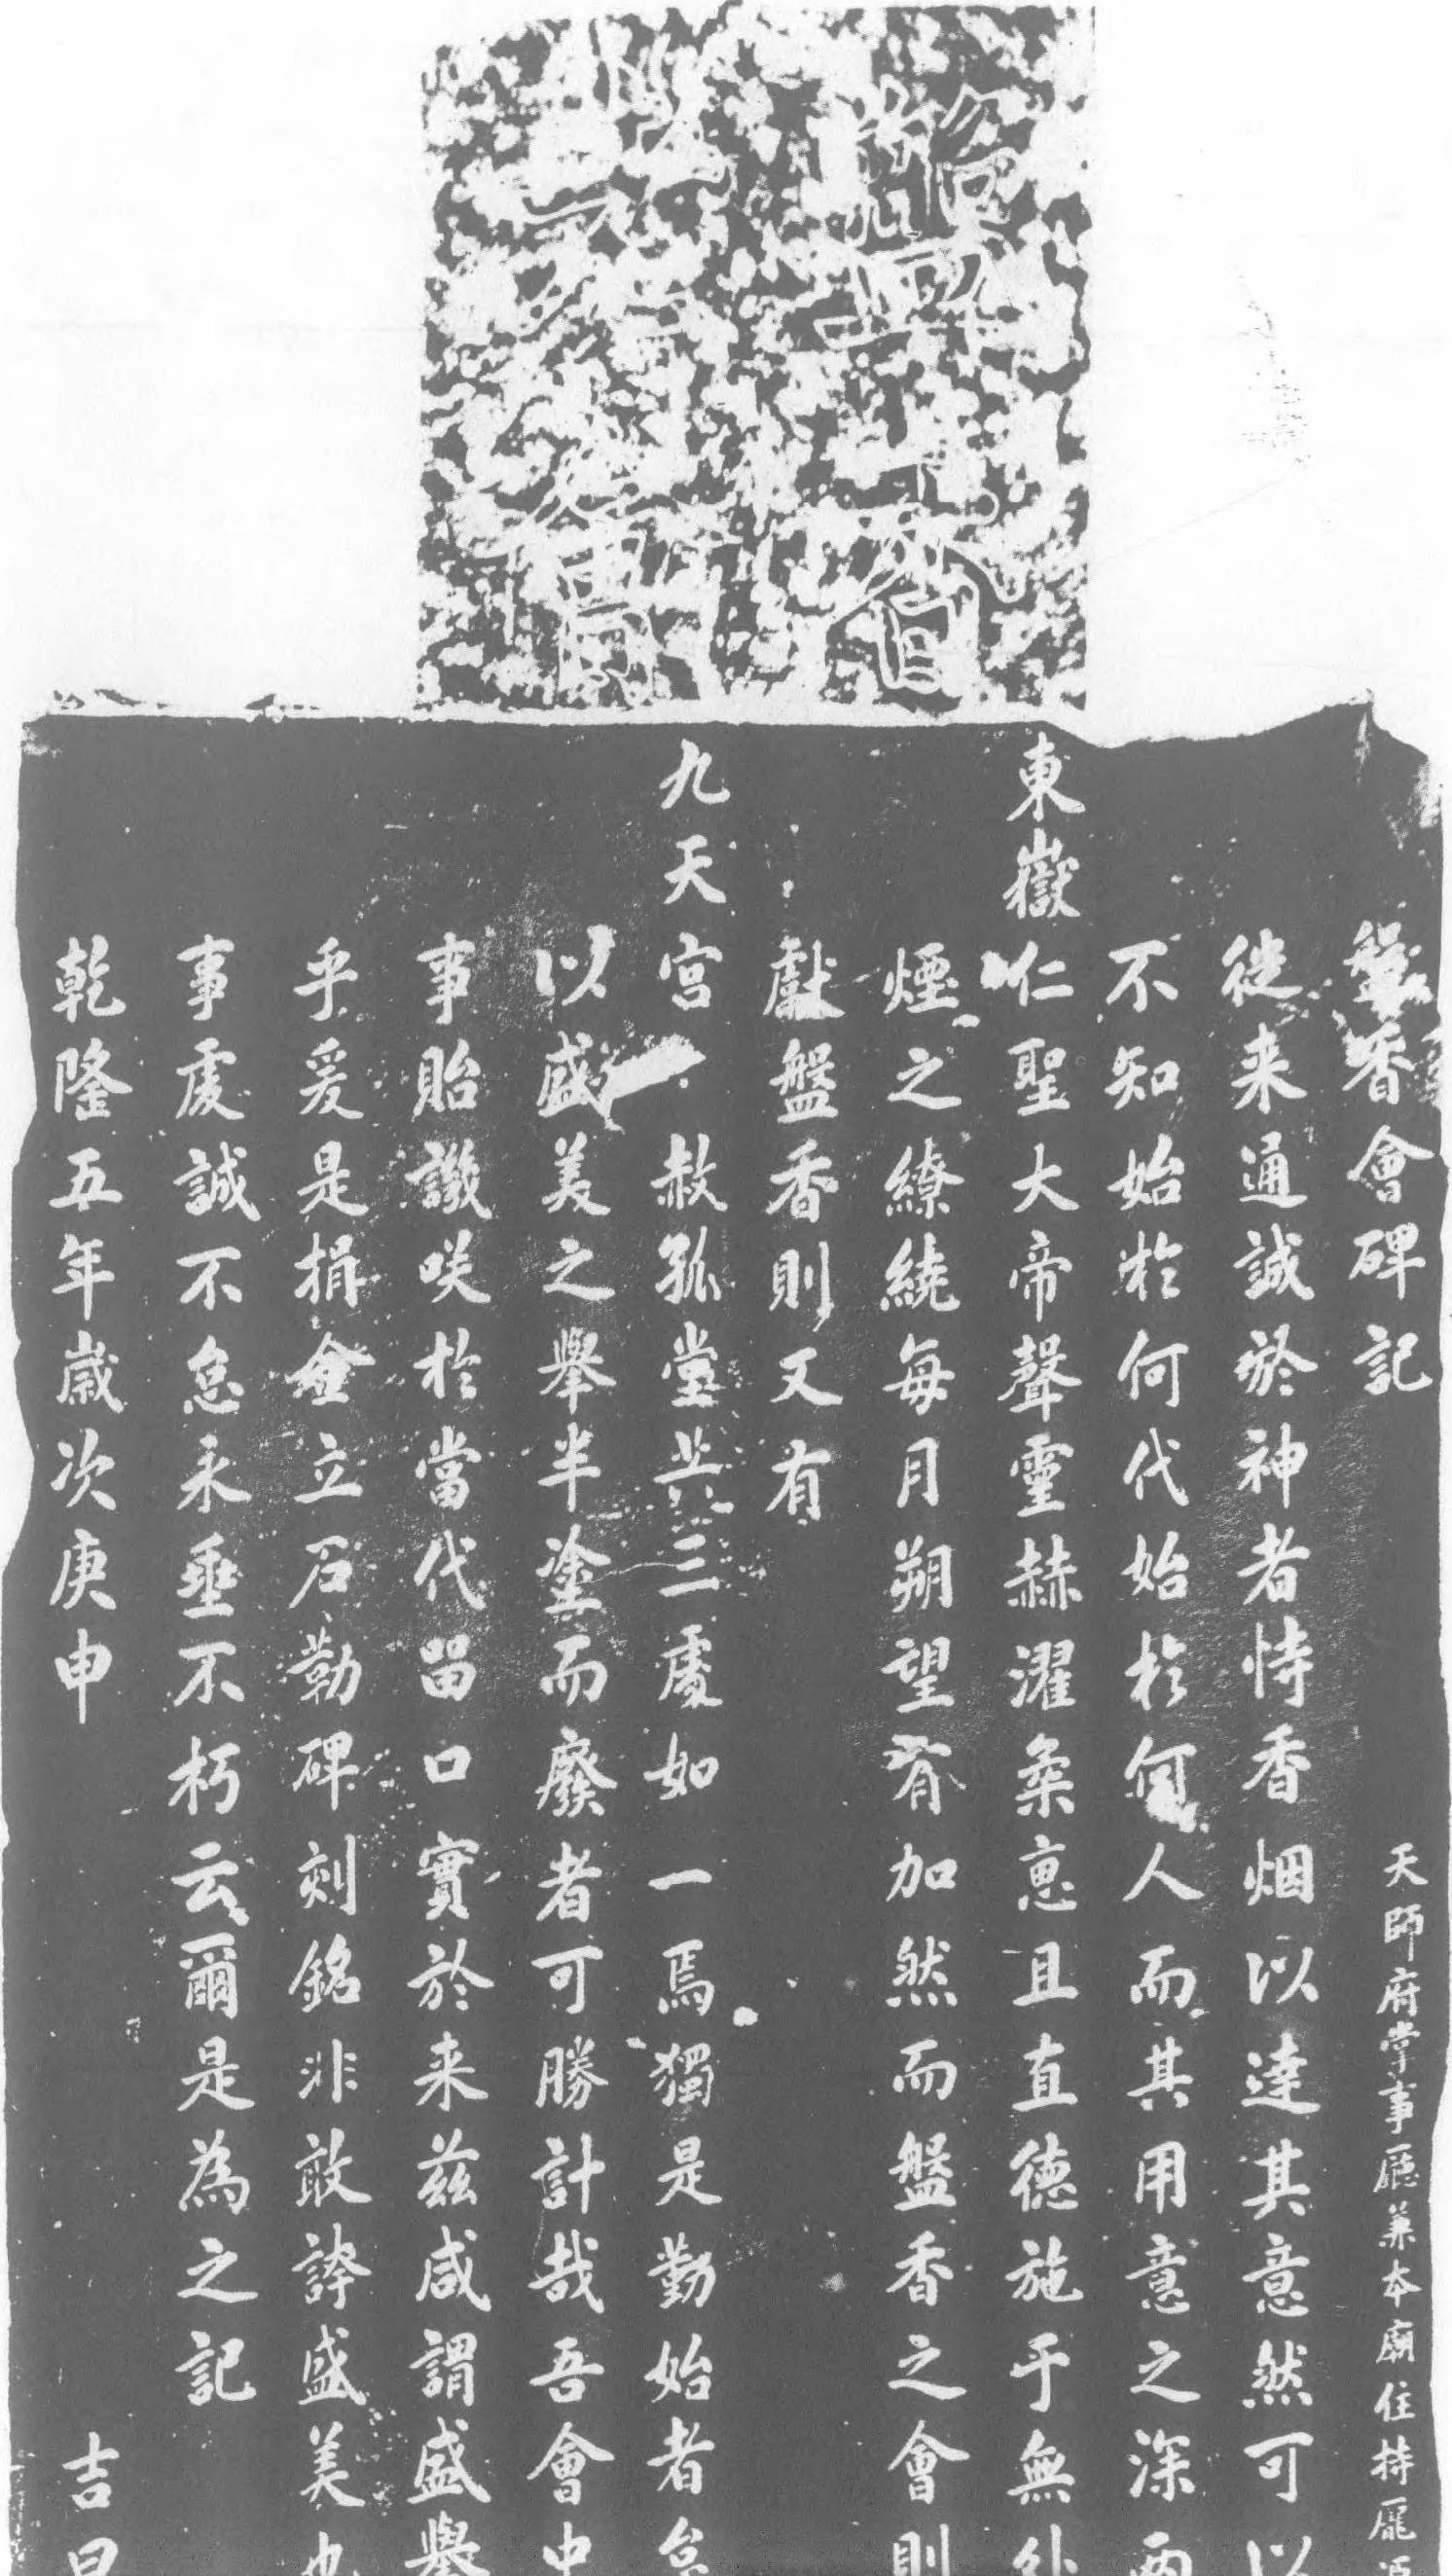 盤香會碑記
天師府掌事廳兼本廟住持龐
徙来通誠於神者恃香烟以達其意然可以
不知始於何代始於何人而其用意之深而
東嶽仁聖大帝聲靈赫濯氣惠且直德施于無外
煙之繚繞每月朔望有加然而盤香之會則
獻盤香則又有
九天宮 赦孤堂共三處如一焉獨是勤始者怠
以盛美之舉半塗而廢者可勝計哉吾會中
事貽譏咲於當代留口實於来茲咸謂盛舉
乎爰是捐金立石勒碑刻銘非敢誇盛美也
事虔誠不怠永垂不朽云爾是為之記
乾隆五年歲次庚申 吉日